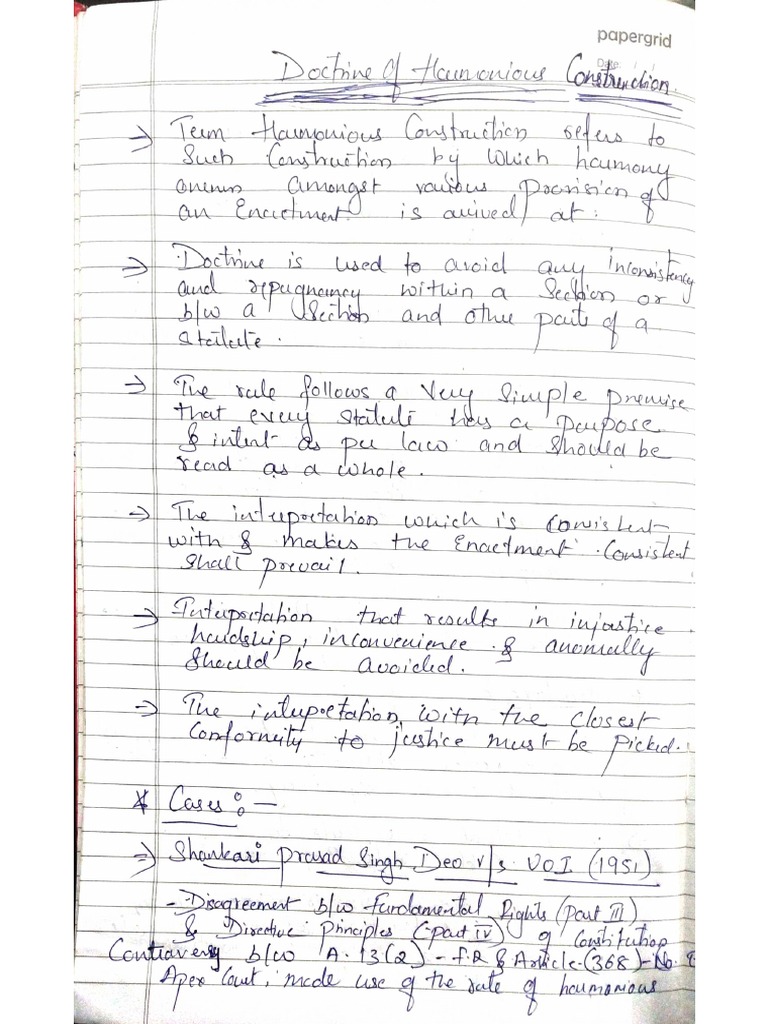 papergrid
Date: / /
Doctrine of Harmonious Construction.
=> Term Harmonious Construction refers to
Such Construction by which harmony
amongst various provision of
an Enactment is arived at.
=> Doctrine is used to avoid any inconsistency
and repugnancy within a Section or
b/w a Section and other parts of a
Statute.
=> The rule follows a very simple premise
that every statute has a purpose
& intent as per law and should be
read as a whole.
=> The interpretation which is consistent
with & makes the Enactment Consistent
shall prevail.
=> Interpretation that results in injustice
hardship, inconvenience & anomally
should be avoided.
=> The interpretation with the closest
conformity to justice must be picked.
* Cases :-
=> Shankari Prasad Singh Deo v/s UOI (1951)
- Disagreement b/w Fundamental Rights (Part III)
& Directive Principles (Part IV) of Constitution
Contraversy b/w A. 13(2) - F.R & Article-(368) - No.
Apex Court, made use of the rule of harmonious